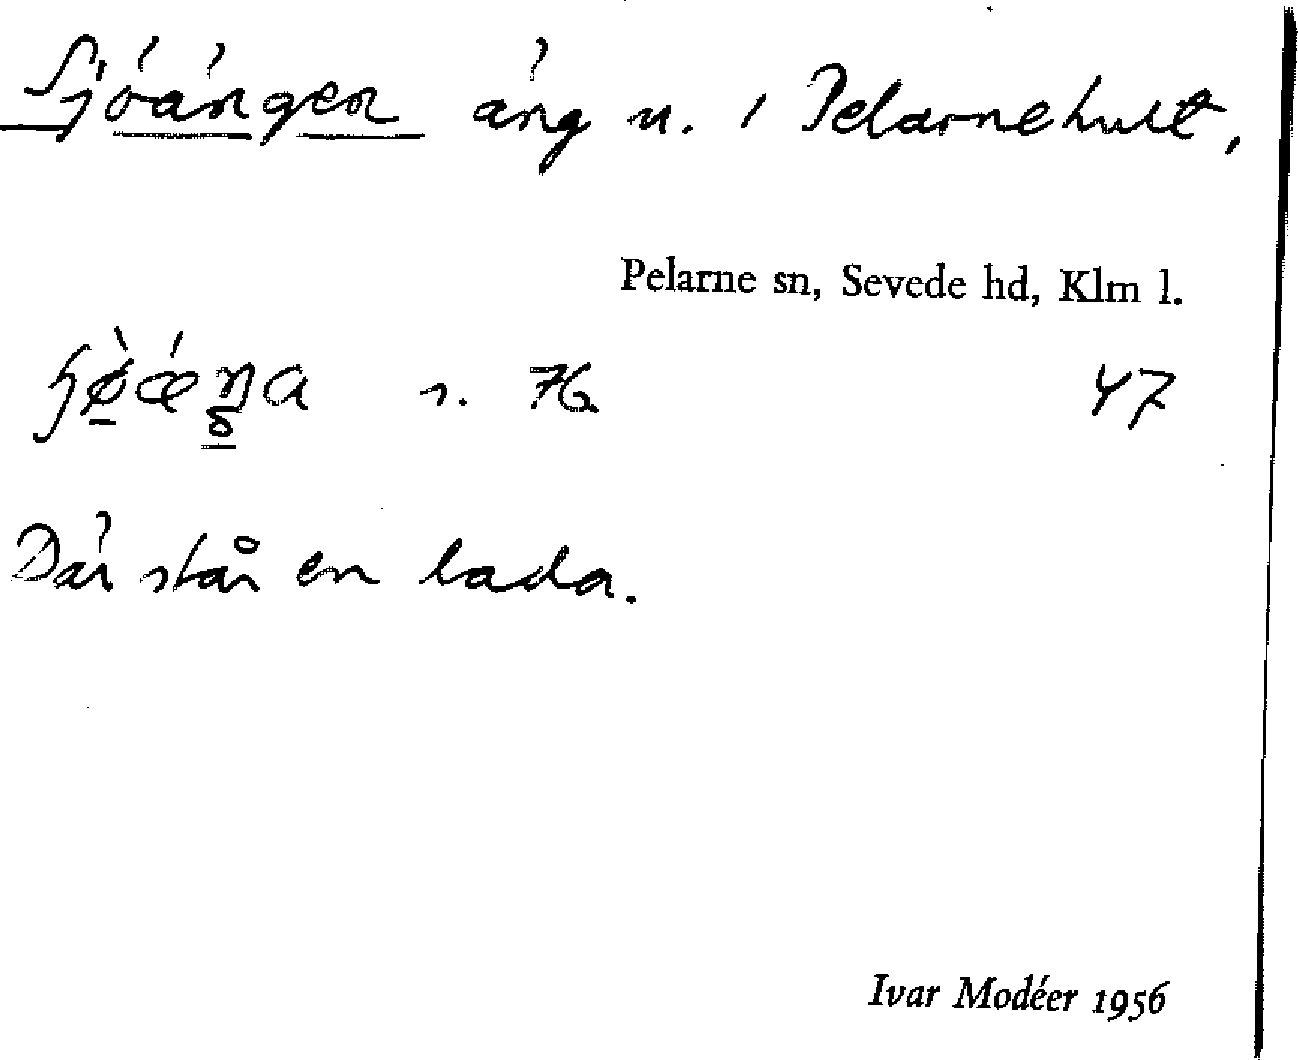 Sjöängen äng n. i Pelarnehult,
Pelarne sn, Sevede hd, Klm l.
s. 76 47
Där står en lada.
Ivar Modéer 1956